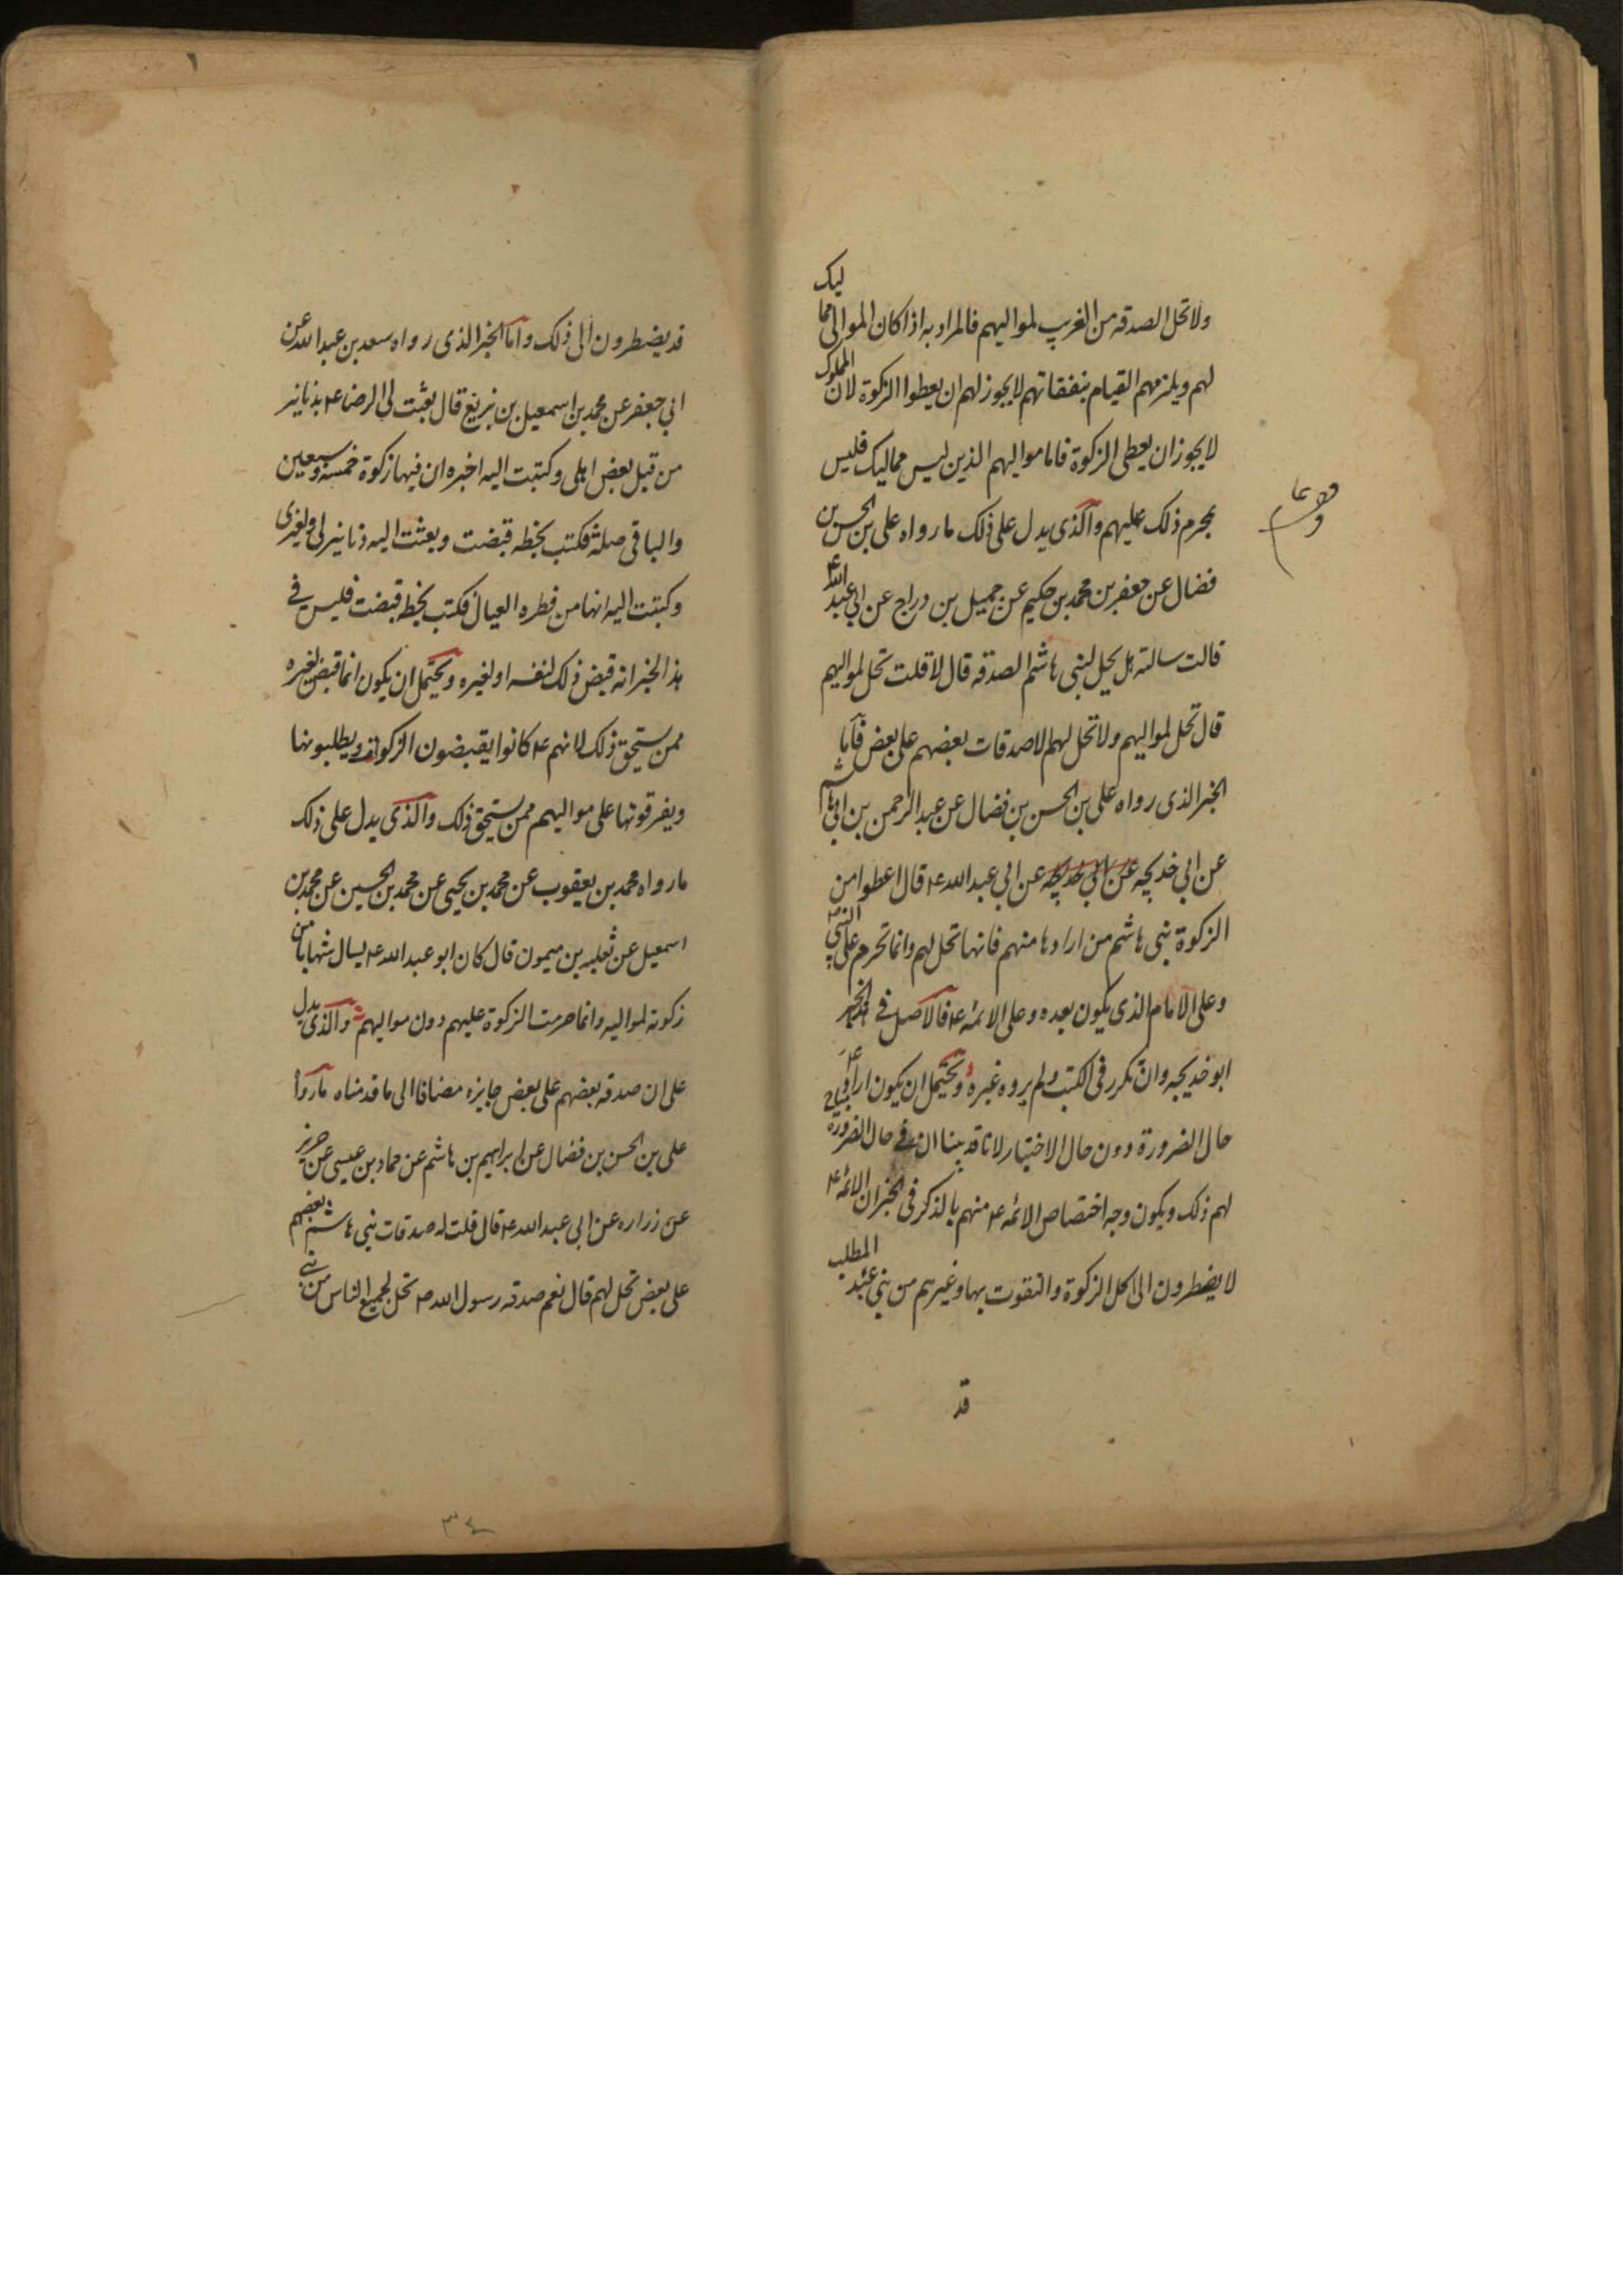 ولا تحل الصدقه من الغريب لمواليهم فالمراد به اذا كان الموالى مماليك
لهم ويلزمهم القيام بنفقاتهم لا يجوز لهم ان يعطوا الزكوة لان المملوك
لا يجوز ان يعطى الزكوة فاما مواليهم الذين ليس مماليك فليس
بمحرم ذلك عليهم والذى يدل على ذلك ما رواه على بن الحسن بن
فضال عن جعفر بن محمد بن حكيم عن جميل بن دراج عن ابى عبد الله ع
قالت سالته هل يحل لبنى هاشم الصدقه قال لا قلت تحل لمواليهم
قال تحل لمواليهم ولا تحل لهم الا صدقات بعضهم على بعض فاما
الخبر الذى رواه على بن الحسن بن فضال عن عبد الرحمن بن ابى هاشم
عن ابى خديجه عن ابى خديجه عن ابى عبد الله ع قال اعطوا من
الزكوة بنى هاشم من ارادها منهم فانها تحل لهم وانما تحرم على النبى ص
وعلى الامام الذى يكون بعده وعلى الائمه ع فالاصل فى هذا الخبر
ابو خديجه وان تكرر فى الكتب ولم يروه غيره ويحتمل ان يكون اراد ع
حال الضرورة دون حال الاختيار لانا قد بينا ان فى حال الضرورة مباح
لهم ذلك ويكون وجه اختصاص الائمه ع منهم بالذكر فى الخبر ان الائمه ع
لا يضطرون الى اكل الزكوة والتقوت بها وغيرهم من بنى عبد المطلب
قد
قد يضطرون الى ذلك واما الخبر الذى رواه سعد بن عبد الله عن
ابى جعفر عن محمد بن اسمعيل بن بزيع قال بعثت الى الرضا ع بدنانير
من قبل بعض اهلى وكتبت اليه اخبره ان فيها زكوة خمسة وسبعين
والباقى صلة فكتب بخطه قبضت وبعثت اليه دنانير لى ولغيرى
وكتبت اليه انها من فطره العيال فكتب بخطه قبضت فليس فى
هذا الخبر انه قبض ذلك لنفسه او لغيره ويحتمل ان يكون انما قبض لغيره
ممن يستحق ذلك لانهم ع كانوا يقبضون الزكوات ويطلبونها
ويفرقونها على مواليهم ممن يستحق ذلك والذى يدل على ذلك
ما رواه محمد بن يعقوب عن محمد بن يحيى عن محمد بن الحسين عن محمد بن
اسمعيل عن ثعلبه بن ميمون قال كان ابو عبد الله ع يسال شهابا من
زكوته لمواليه وانما حرمت الزكوة عليهم دون مواليهم والذى يدل
على ان صدقه بعضهم على بعض جايزه مضافا الى ما قدمناه ما رواه
على بن الحسن بن فضال عن ابراهيم بن هاشم عن حماد بن عيسى عن حريز
عن زراره عن ابى عبد الله ع قال قلت له صدقات بنى هاشم بعضهم
على بعض تحل لهم قال نعم صدقه رسول الله ص تحل لجميع الناس من بنى
٣٤